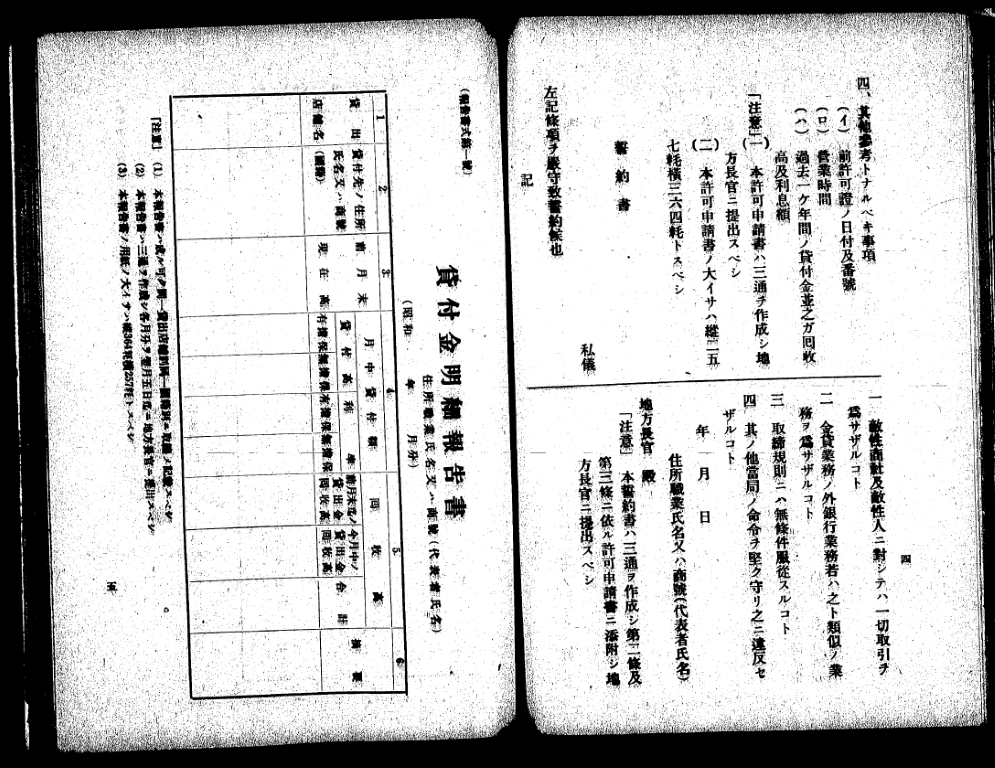 四、其他參考トナルベキ事項
(イ) 前許可證ノ日付及番號
(ロ) 營業時間
(ハ) 過去一ケ年間ノ貸付金並之ガ回收
高及利息額
「注意」(一) 本許可申請書ハ三通ヲ作成シ地
方長官ニ提出スベシ
(二) 本許可申請書ノ大イサハ縱二五
七粍橫三六四粍トスベシ
誓約書
私儀
左記條項ヲ嚴守致誓約候也
記
一 敵性商社及敵性人ニ對シテハ一切取引ヲ
爲サザルコト
二 金貸業務ノ外銀行業務若ハ之ト類似ノ業
務ヲ爲サザルコト
三 取締規則ニハ無條件服從スルコト
四 其ノ他當局ノ命令ヲ堅ク守リ之ニ違反セ
ザルコト
年 月 日
住所職業氏名又ハ商號(代表者氏名)
地方長官 殿
「注意」 本誓約書ハ三通ヲ作成シ第二條及
第三條ニ依ル許可申請書ニ添附シ地
方長官ニ提出スベシ
四
(報告書式第一號)
貸付金明細報告書
住所職業氏名又ハ商號(代表者氏名)
(昭和 年 月分)
1 2 3 4 5 6
貸出店舖名
貸付先ノ住所氏名又ハ商號
前月末現在高
月中貸付額
貸付高 利率
有擔保 無擔保 有擔保 無擔保
回收高
前月末迄ノ貸出金回收高
今月中ノ貸出金回收高
合計
摘要
「注意」 (1) 本報告書ハ
(2) 本報告書ハ三通ヲ作成シ各月分ヲ翌月五日迄ニ地方長官ニ提出スベシ
(3) 本報告書ノ用紙ノ大イサハ縱364粍橫257粍トスベシ
五